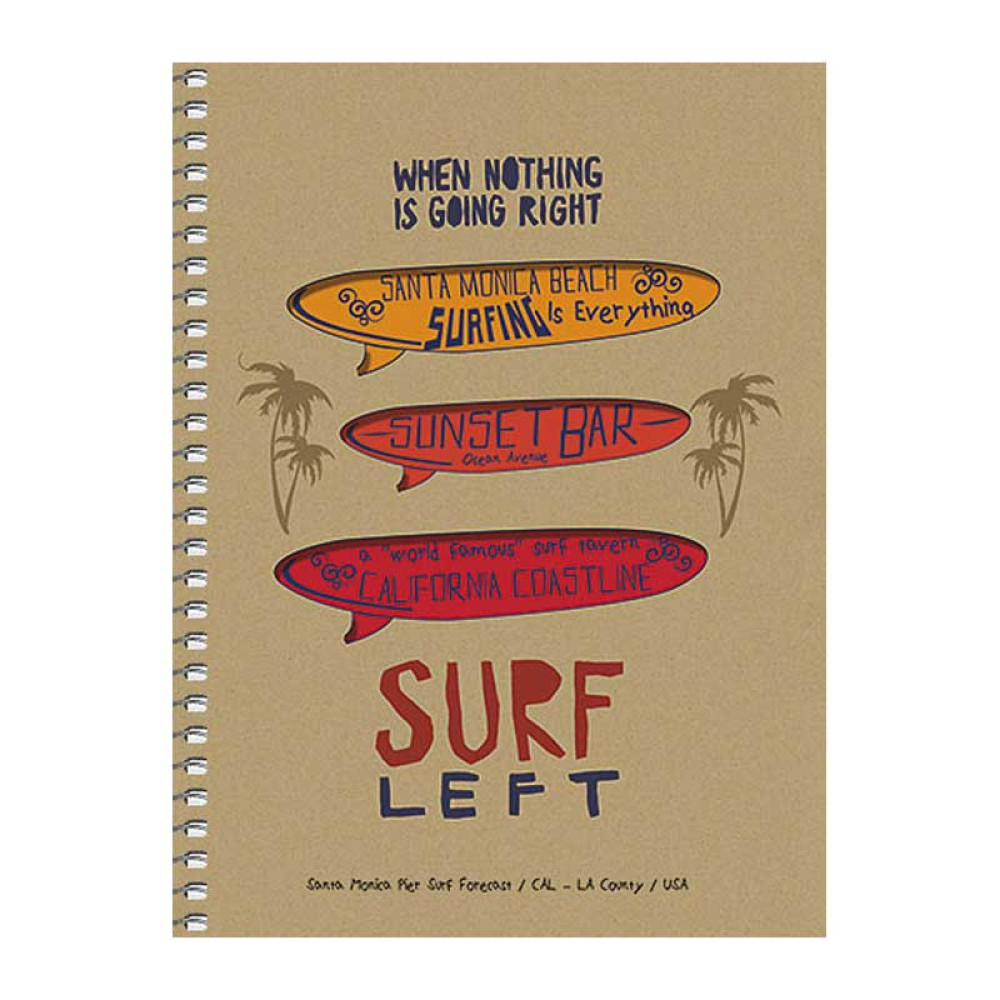 WHEN NOTHING
IS GOING RIGHT
SANTA MONICA BEACH
SURFING Is Everything
SUNSET BAR
Ocean Avenue
a "world famous" surf tavern
CALIFORNIA COASTLINE
SURF
LEFT
Santa Monica Pier Surf Forecast / CAL - LA County / USA